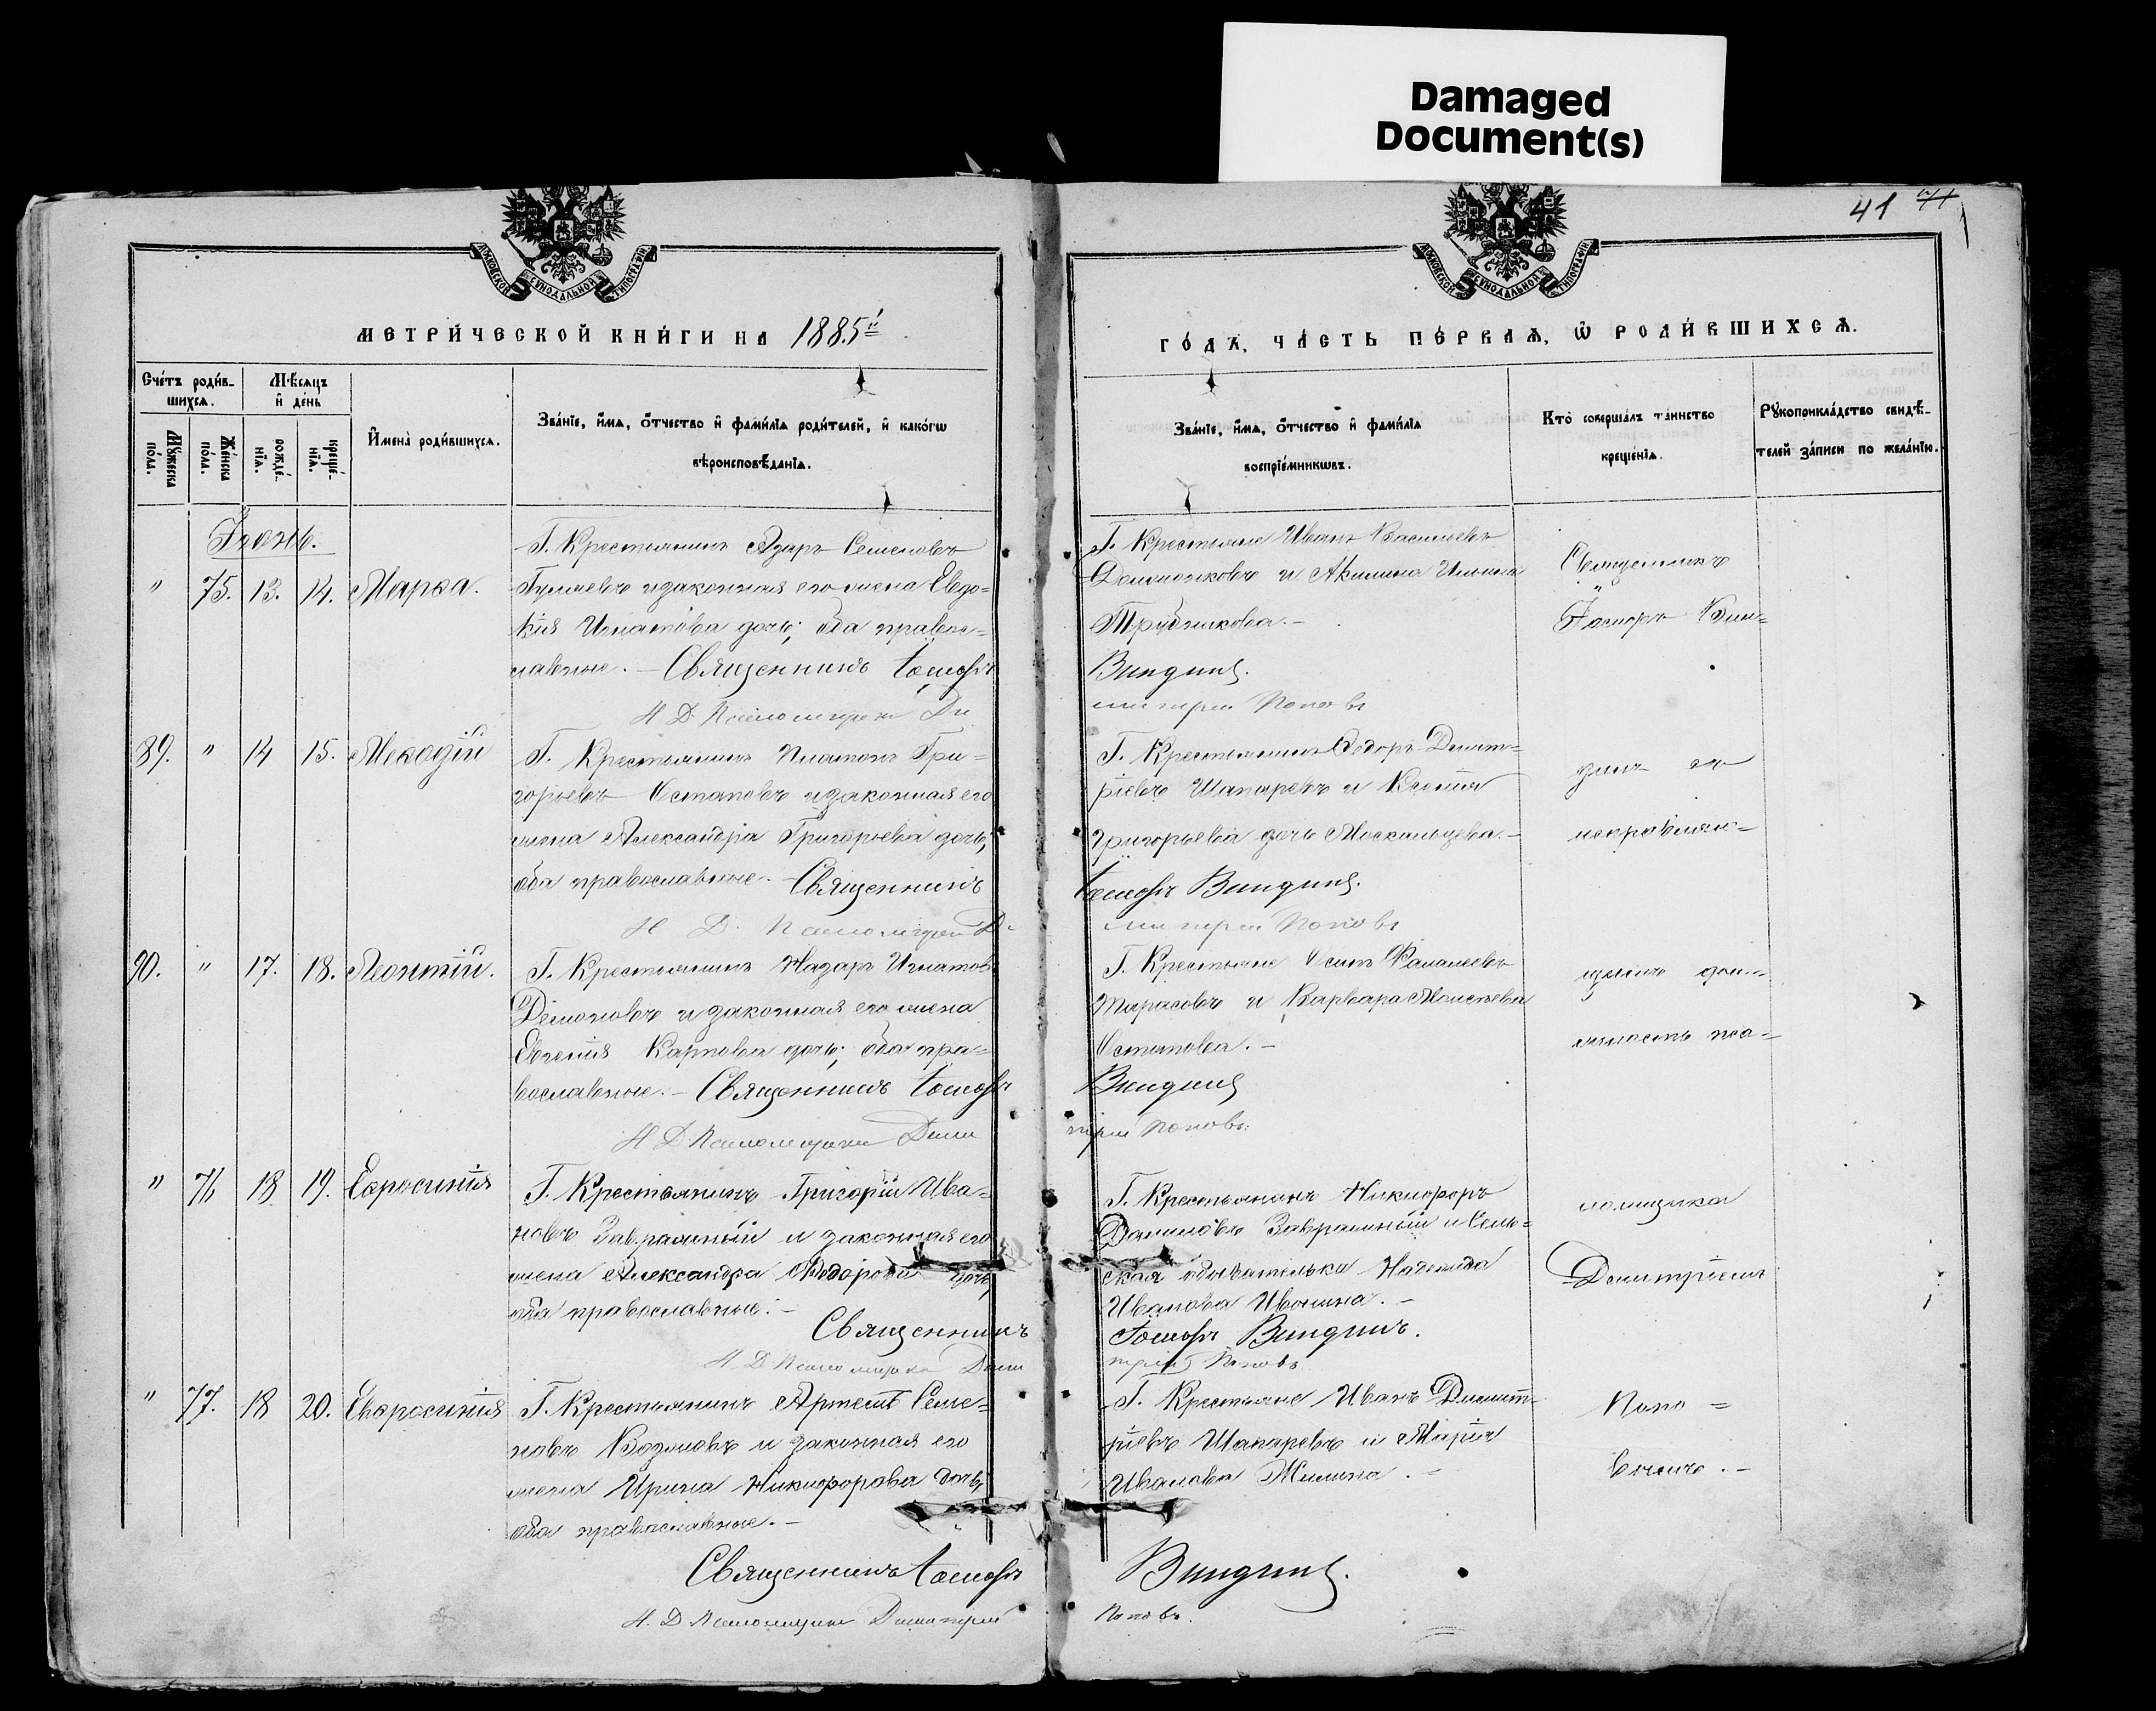 Damaged
Document(s)
41
МОСКОВСКОЙ СѴНОДАЛЬНОЙ ТИПОГРАФІИ
МОСКОВСКОЙ СѴНОДАЛЬНОЙ ТИПОГРАФІИ
МЕТРИ́ЧЕСКОЙ КНИ́ГИ НА 1885й
ГО́ДА, ЧА́СТЬ ПЕ́РВАѦ, Ѡ҆ РОДИ́ВШИХСѦ.
Сче́тъ роди́в-
шихсѧ.
Мѣ́сѧцъ
и҆ де́нь
Мꙋ́жеска
по́ла.
Же́нска
по́ла.
рожде́-
нїѧ.
креще́-
нїѧ.
И҆мена̀ роди́вшихсѧ.
Зва́нїе, и҆́мѧ, о҆́тчество и҆ фами́лїѧ роди́телей, и҆ како́гѡ
вѣроисповѣ́данїѧ.
Зва́нїе, и҆́мѧ, о҆́тчество и҆ фами́лїѧ
воспрїе́мникѡвъ.
Кто̀ соверша́лъ та́инство
креще́нїѧ.
Рꙋкоприкла́дство свидѣ́-
телей за́писи по жела́нїю.
Іюнь.
" 75. 13. 14. Марѳа.
Г. Крестьянинъ Азаръ Семеновъ
Гуляевъ и законная его жена Евдо=
кія Игнатова дочь; оба правос=
лавные. — Священникъ Іосифъ
И Д Псаломщика Ди
Г. Крестьяне Иванъ Васильевъ
и Акилина Ильина
Трубникова. —
Виндинъ.
митрій Поповъ
Священникъ
Іосифъ Вин=
89. " 14 15. Меѳодій
Г. Крестьянинъ Платонъ Гри=
горьевъ Остаповъ и законная его
жена Александра Григорьева дочь;
оба православные. — Священникъ
И Д. Псаломщика Ди
Г. Крестьянинъ Ѳедоръ Димит=
ріевъ Шапаревъ и Ксенія
Григорьева дочь Москальцева. —
Іосифъ Виндинъ.
митрій Поповъ
динъ съ
исправляю=
90. " 17. 18. Леонтій.
Г. Крестьянинъ Назаръ Игнатовъ
Демоновъ и законная его жена
Евгенія Карпова дочь; оба пра=
вославные. — Священникъ Іосифъ
И Д Псаломщика Дими
Г. Крестьяне Осипъ
Тарасовъ и Варвара Моисеева
Остапова. —
Виндинъ
трій Поповъ.
щимъ дол=
жность пса=
" 76 18 19. Евросинія
Г. Крестьянинъ Григорій Ива=
новъ Завражный и законная его
жена Александра Ѳедорова дочь,
оба православные. —
Священникъ
И. Д Псаломщика Дими
Г. Крестьянинъ Никифоръ
Даниловъ Завражный и Сель=
ская обывателька Надежда
Иванова Ивонина. —
Іосифъ Виндинъ.
трій Поповъ
ломщика
Димитріемъ
" 77. 18 20. Евфросинія
Г. Крестьянинъ Артемій Семе=
новъ и законная его
жена Ирина Никифорова дочь;
оба православные. —
Священникъ Іосифъ
И. Д Псаломщика Димитрій
Г. Крестьяне Иванъ Димит=
ріевъ Шапаревъ и Марія
Иванова Жилина. —
Виндинъ.
Поповъ.
Попо =
вымъ. —